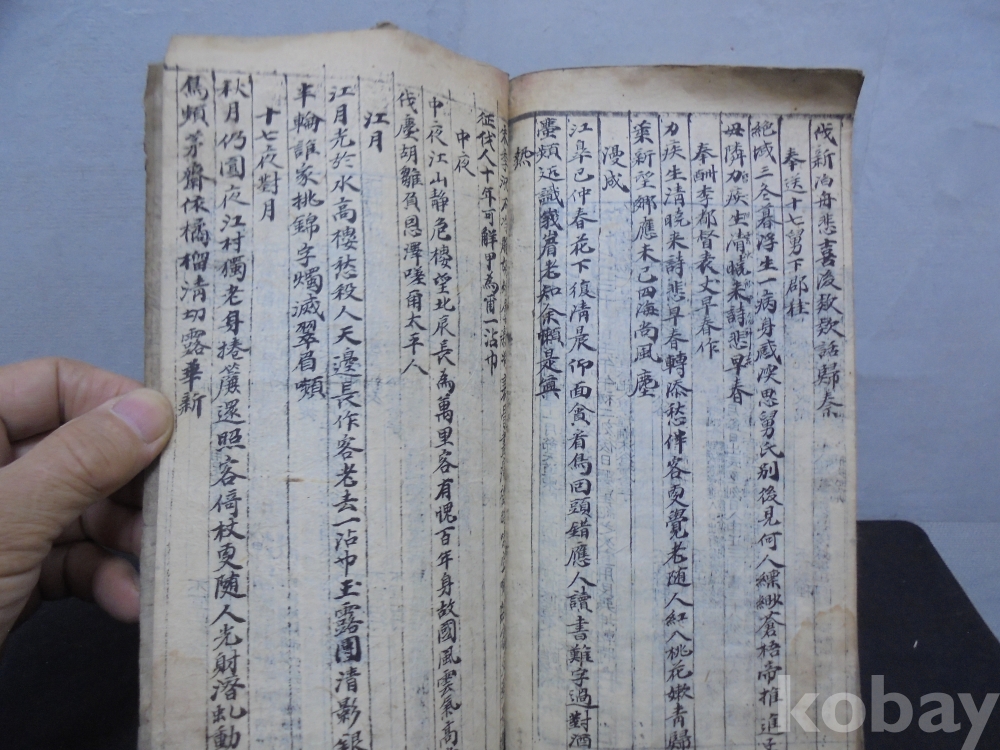 伐新泊舟悲喜後欵欵話歸秦
奉送十七舅下邵桂
絶域三冬暮浮生一病身感深思舅氏別後見何人縹緲蒼梧帝推遷孟
母隣
力疾坐清曉來詩悲早春
奉酬李都督表丈早春作
力疾坐清曉來詩悲早春轉添愁伴客更覺老隨人紅入桃花嫩青歸
葉新望鄉應未已四海尚風塵
漫成
江皐已仲春花下復清晨仰面貪看鳥回頭錯應人讀書難字過對酒
壺頻近識峩眉老知余懶是眞
熱
征伐人十年可解甲為爾一沾巾
中夜
中夜江山静危樓望北辰長為萬里客有愧百年身故國風雲氣高
伐塵胡雛負恩澤嗟爾太平人
江月
江月光於水高樓愁殺人天邊長作客老去一沾巾玉露團清影銀
半輪誰家挑錦字燭滅翠眉顰
十七夜對月
秋月仍圓夜江村獨老身捲簾還照客倚杖更隨人光射潛虬動
鳥頻茅齋依橘柚清切露華新
kobay